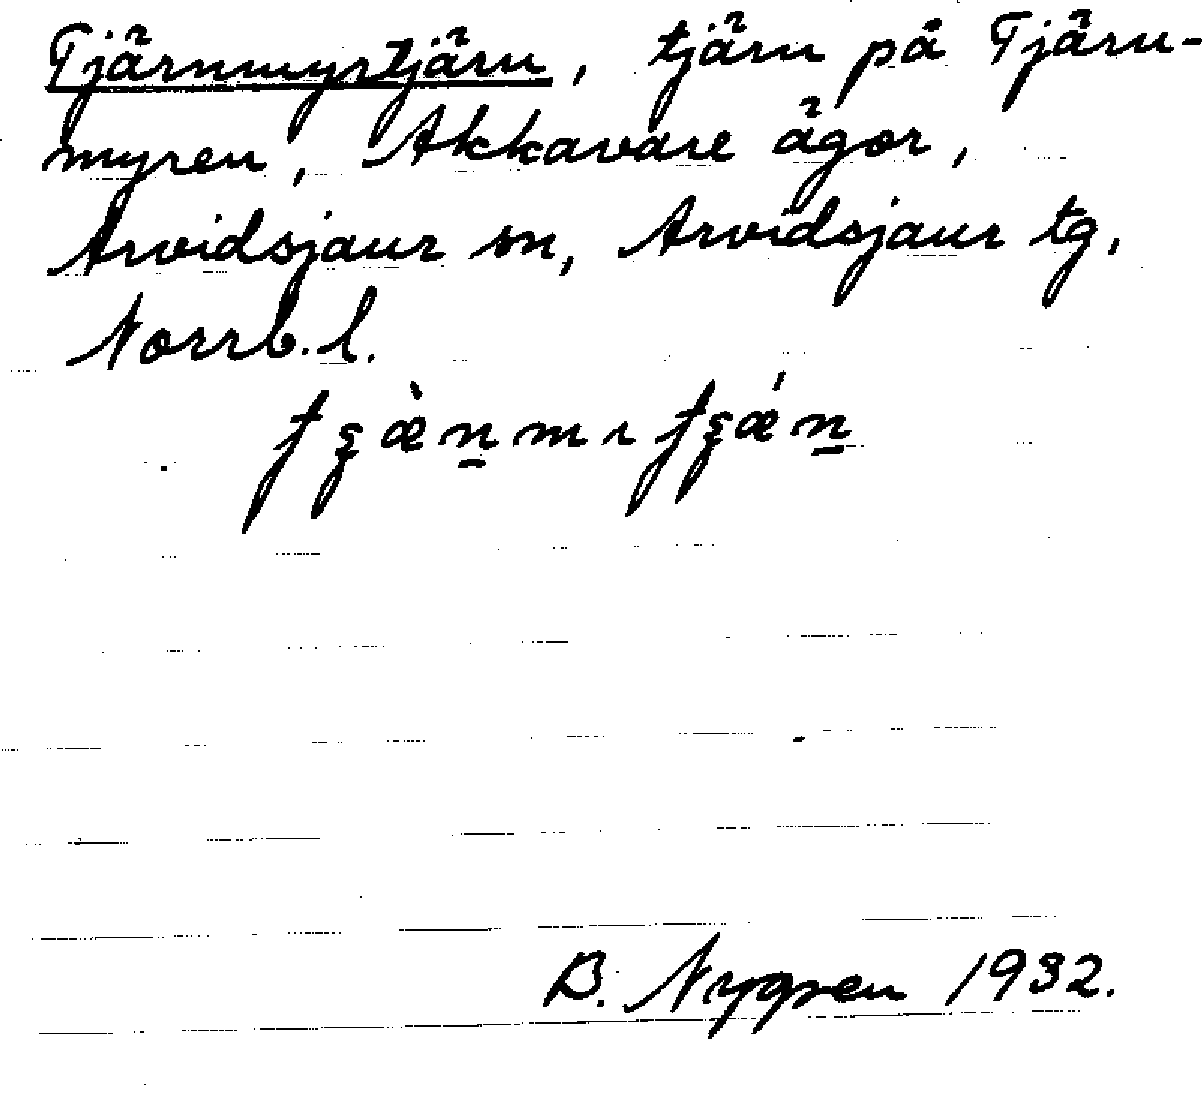 Tjärnmyrtjärn, tjärn på Tjärn-
myren, Akkavare ägor,
Arvidsjaur sn, Arvidsjaur tg,
Norrb. l.
B. Nygren 1932.